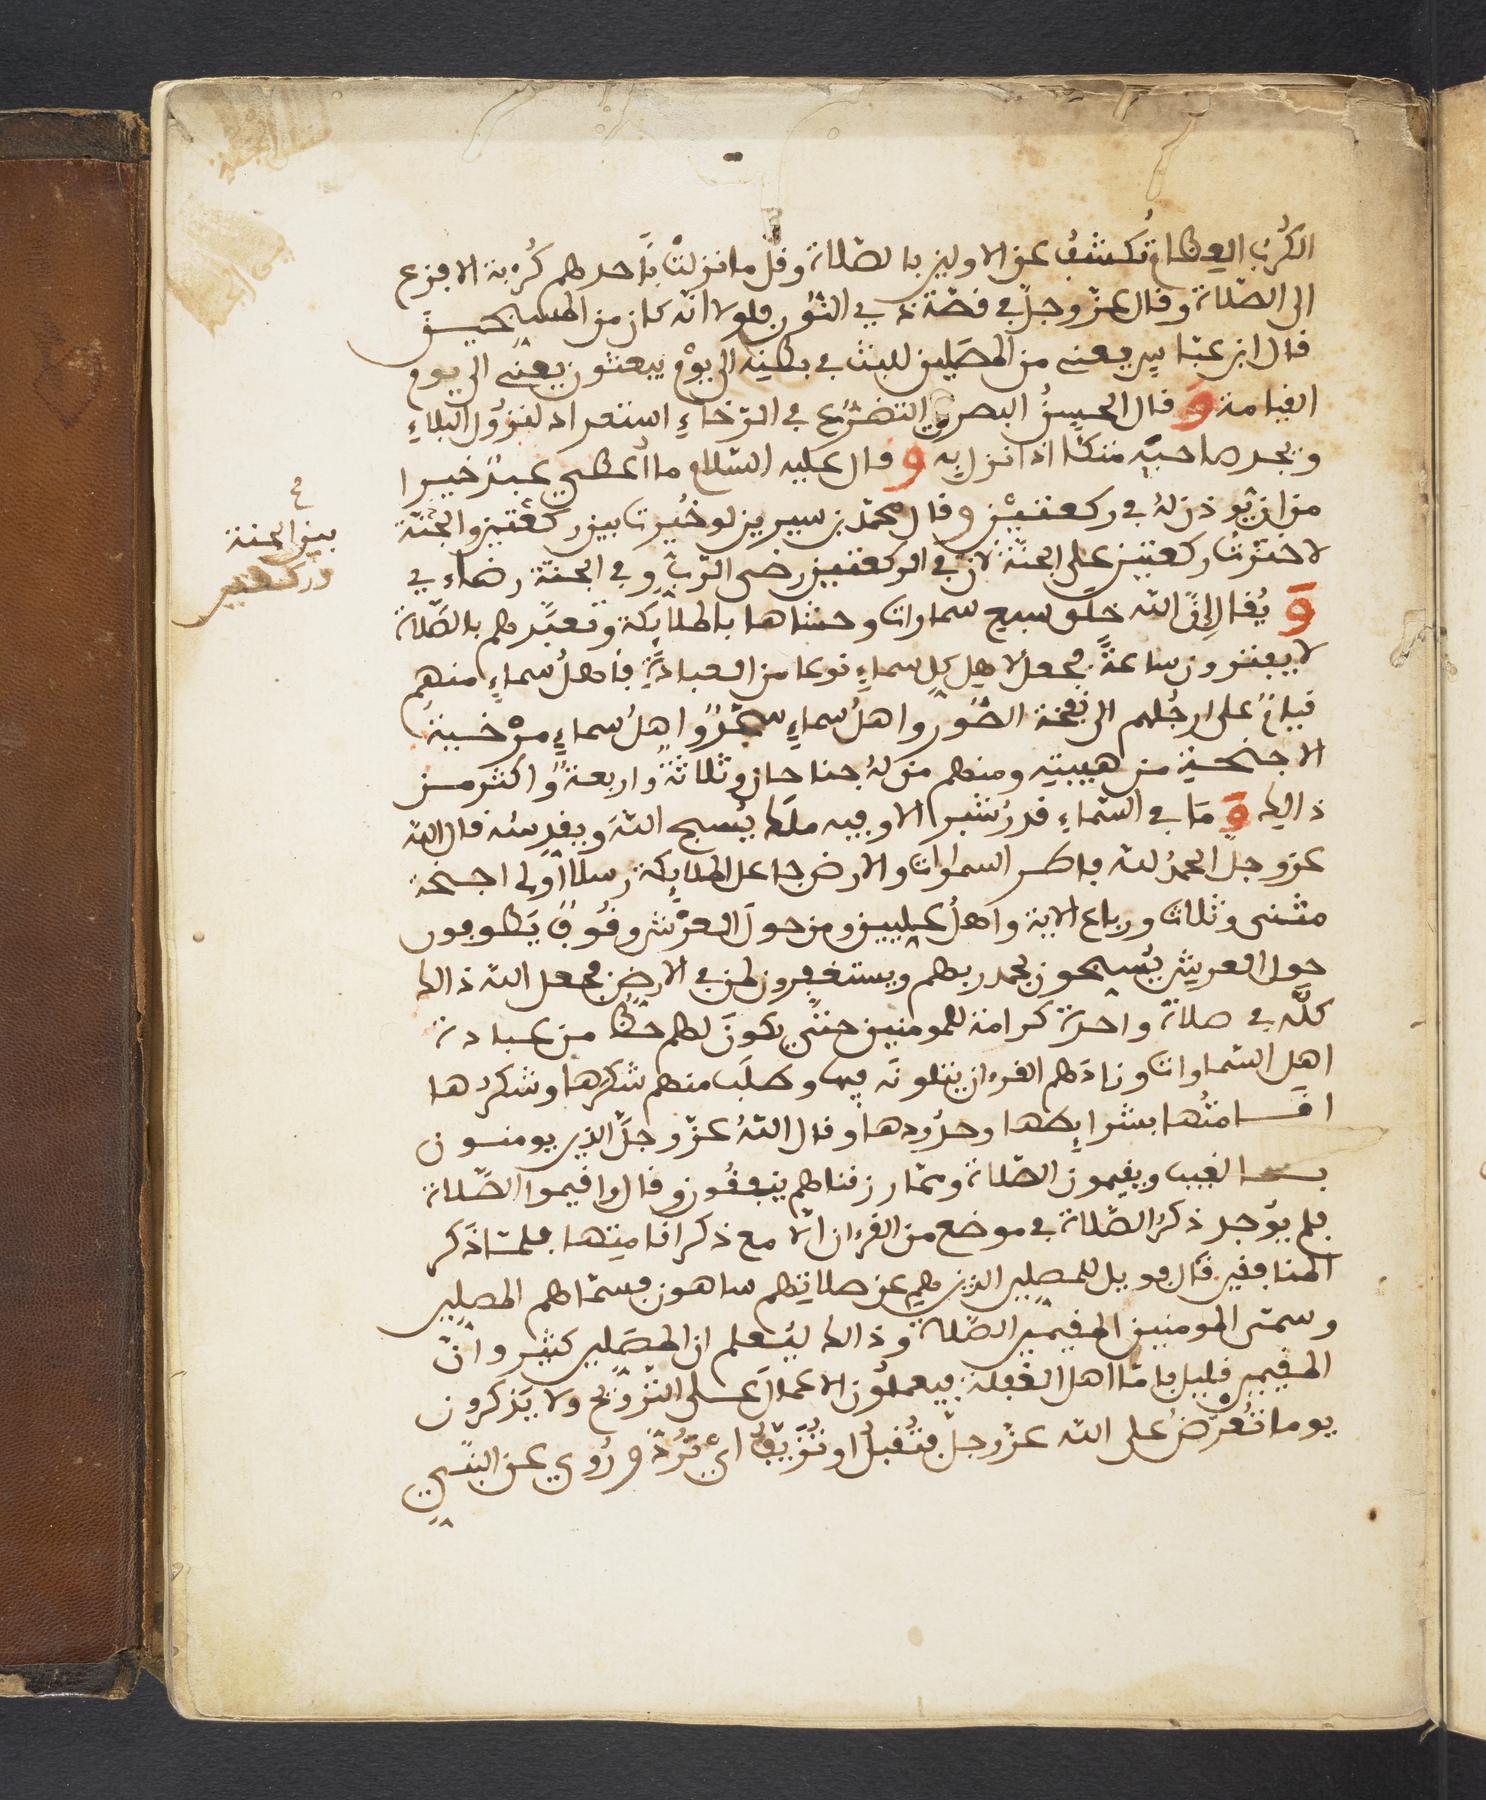 الكُرَبُ العِظامُ تُكشَفُ عن الاولين بالصّلاة وقلّ ما نزلتْ بأحدهم كُرْبة الا فزع
الى الصّلاة وقال عزّ وجلّ في قصّة ذي النّون فلولا انّه كان من المسبحين
قال ابن عبّاس يعني من المصَلّين للبث في بطنِه الى يوم يبعثون يعني الى يوم
القيامة وَ قال الحسنُ البصري التضرّع في الرّخاءِ استعداد لنزول البلاءِ
ويجد صاحبه متكئا اذا نزل به وَ قال عليه السّلام ما أُعطي عبدٌ خيرا
من ان يؤذن لهُ في ركعتيْن وقال محمّد بن سيرين لو خُيّرت بين ركعتين والجنّة
لاخترتُ ركعتين على الجنّة لان في الركعتين رضى الرّب وفي الجنّة رضاءي
وَ يُقال إنّ الله خلق سبع سماوات وحشاها بالملاۤئكة وتعبّدهم بالصّلاة
لا يفترون ساعةً فجعل لاهل كل سماءٍ نوعا من العبادةِ فأهلُ سماءٍ منهم
قيامٌ على ارجُلهم الى نفخة الصّور واهلُ سماءٍ سجّدٌ واهلُ سماءٍ مرْخية
الاجنحةِ من هيبتِه ومنهم من لهُ جناحان وثلاثةٌ واربعةٌ واكثر من
ذالك وَ مَا في السّماءِ قدرُ شبر الا وفيه ملك يُسبح اللّهَ ويقدِسُه قال الله
عز وجلّ الحمدُ لله فاطر السماوات والارض جاعل الملائكة رسلا أولى اجنحة
مثنى وثلاث ورباع الاية واهلُ عليين ومن حولَ العرْش وقُوفٌ يَطوفون
حول العرش يُسبحون بحمد ربهم ويستغفرون لمن في الارض فجعل الله ذالك
كلَّه في صلاة واحدة كرامة للمومنين حتى يكونَ لهم حَظٌ من عبادة
اهل السّماوات وزادَهم القرءان يتلونَه فيه وطلَب منهم شكرها وشكرُها
اقامتُها بشرائطها وحدُودها وقال اللهُ عزّ وجلَّ الذين يومنون
بالغيب ويقيمون الصّلاة وممّا رزقناهم ينفقُون وقال واقيموا الصّلاة
فلم يوجد ذكرُ الصّلاة في موضع من القرءان الاّ مع ذكر اقامتِها فلمّا ذَكر
المنافقين قال فويل للمصلين الذين هم عن صلاتِهم ساهون فسمّاهم المصلين
وسمّى المومنين المقيمين الصّلاة وذالك ليُعلم ان المصَلين كثير وانّ
المقيمين قليل فامّا اهل الغفلة فيعملُون الاعمالَ على التّروّيح ولا يَذكرون
يوما تُعرَضُ على الله عزّ وجلّ فتُقبلُ او تُزَيَّفُ ايْ تُرَدُّ ورُوي عن النبي
بين الجنة
وركعتين